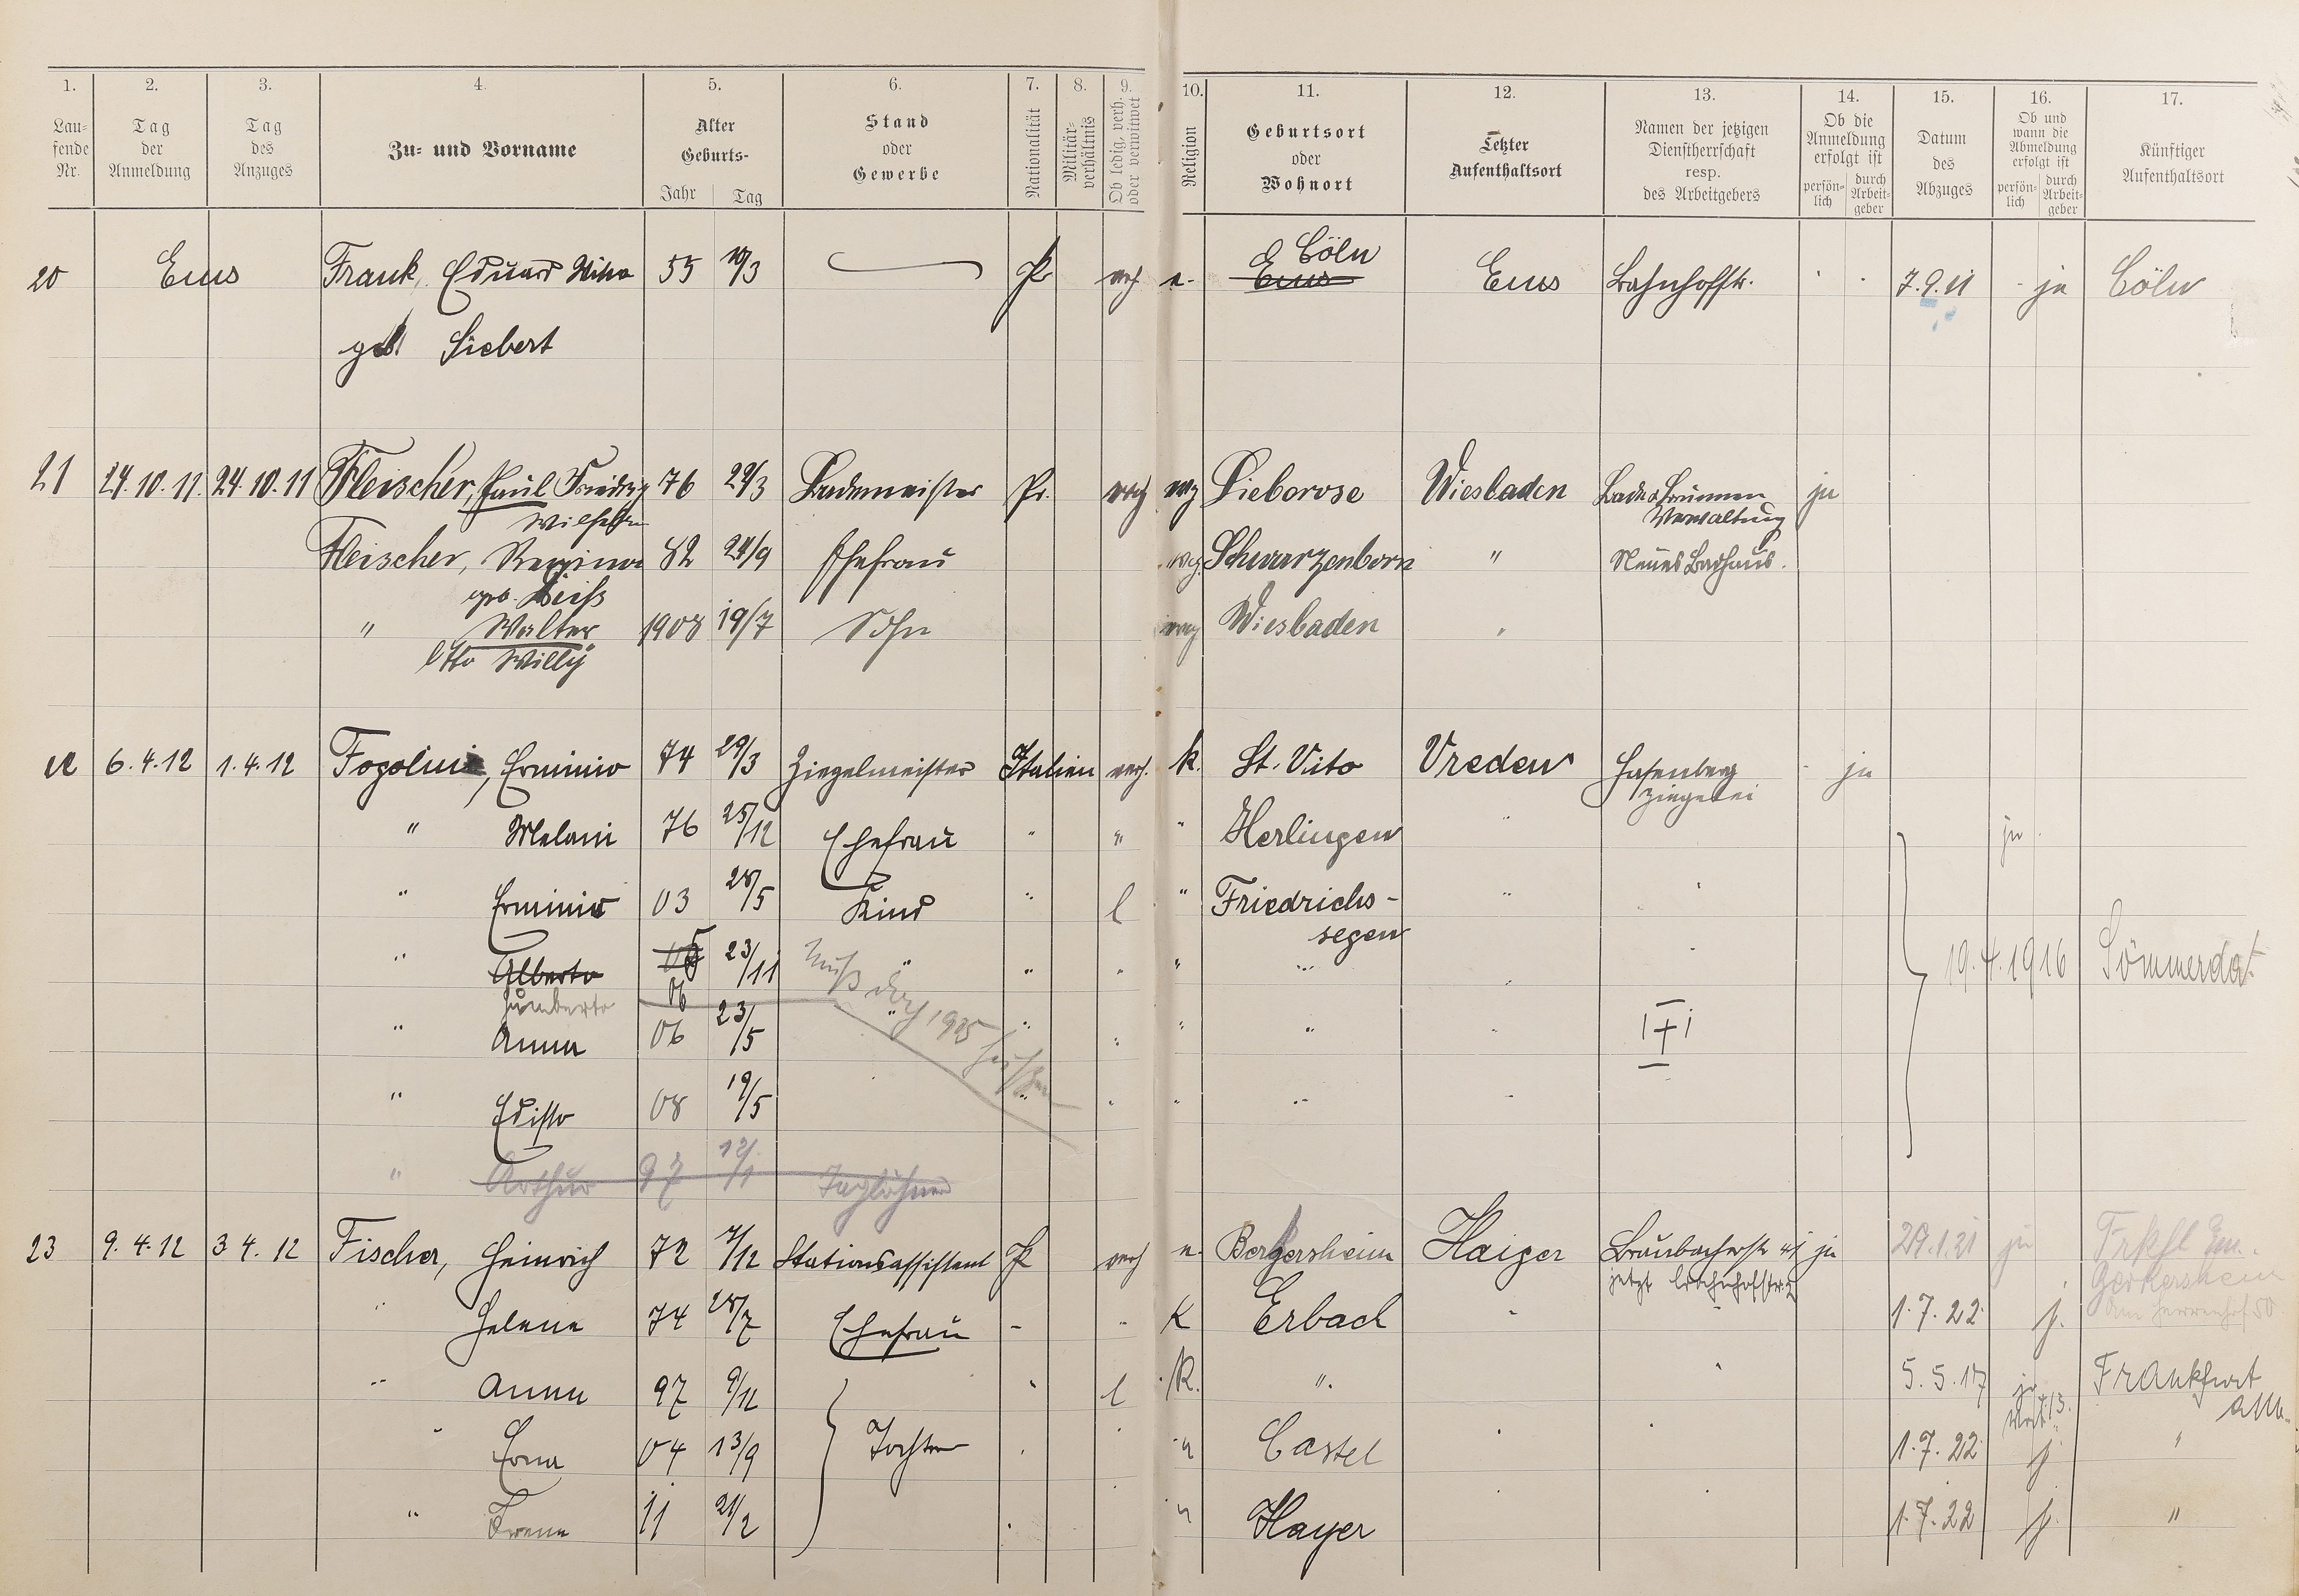 1. 2. 3. 4. 5. 6. 7. 8. 9. 10. 11. 12. 13. 14. 15. 16. 17.
Lau-
fende
Nr.
Tag
der
Anmeldung
Tag
des
Anzuges
Zu- und Vorname
Alter
Geburts-
Jahr Tag
Stand
oder
Gewerbe
Nationalität
Militär-
verhältnis
Ob ledig, verh.
oder verwitwet
Religion
Geburtsort
oder
Wohnort
Letzter
Aufenthaltsort
Namen der jetzigen
Dienstherrschaft
resp.
des Arbeitgebers
Ob die
Anmeldung
erfolgt ist
persön-
lich
durch
Arbeit-
geber
Datum
des
Abzuges
Ob und
wann die
Abmeldung
erfolgt ist
persön-
lich
durch
Arbeit-
geber
Künftiger
Aufenthaltsort
Cöln
20 Ems Frank, Eduard 55 Pr. verh Ems Ems Bahnhofstr. 7.9.11 ja Cöln
geb Siebert
21 24.10.11. 24.10.11 Fleischer, Paul Friedrich 76 29/3 Bademeister Pr. verh evg Lieborose Wiesbaden Bade & Brunnen ja
Wilhelm Verwaltung
Fleischer, Regina 82 24/9 Ehefrau evg. Schwarzenborn " Neues Badhaus.
geb. Leiß
" Walter 1908 19/7 Sohn evg Wiesbaden "
Otto Willy
22 6.4.12 1.4.12 Fogolini, Erminio 74 29/3 Ziegelmeister Italien verh. k. St. Vito Vreden Hasenberg ja
Ziegelei
" Melani 76 25/12 Ehefrau " " " Herlingen " ja
" Erminio 03 28/5 Kind " l " Friedrichs-
segen
" Alberto 23/11 " " " " 19.4.1916 Sömmerda
Humberto 06
" Anna 06 23/5 " " " "
" 08 19/5 " " "
" Arthur 97 12/1 Taglöhner
23 9.4.12 3 4. 12 Fischer, Heinrich 72 7/12 Stationsassistent Pr verh e. Bergersheim Haiger Braubacherstr ja 29.1.21 ja
jetzt Bahnhofstr. 2
" Helene 74 28/7 Ehefrau - " K Erbach " 1.7.22 j.
" Anna 97 9/12 " l K. " 5.5.17 ja Frankfurt
" Erna 04 13/9 Tochter " Castel 1.7.22 j. "
" Irene 11 21/2 " Hayer 1.7.22 j. "